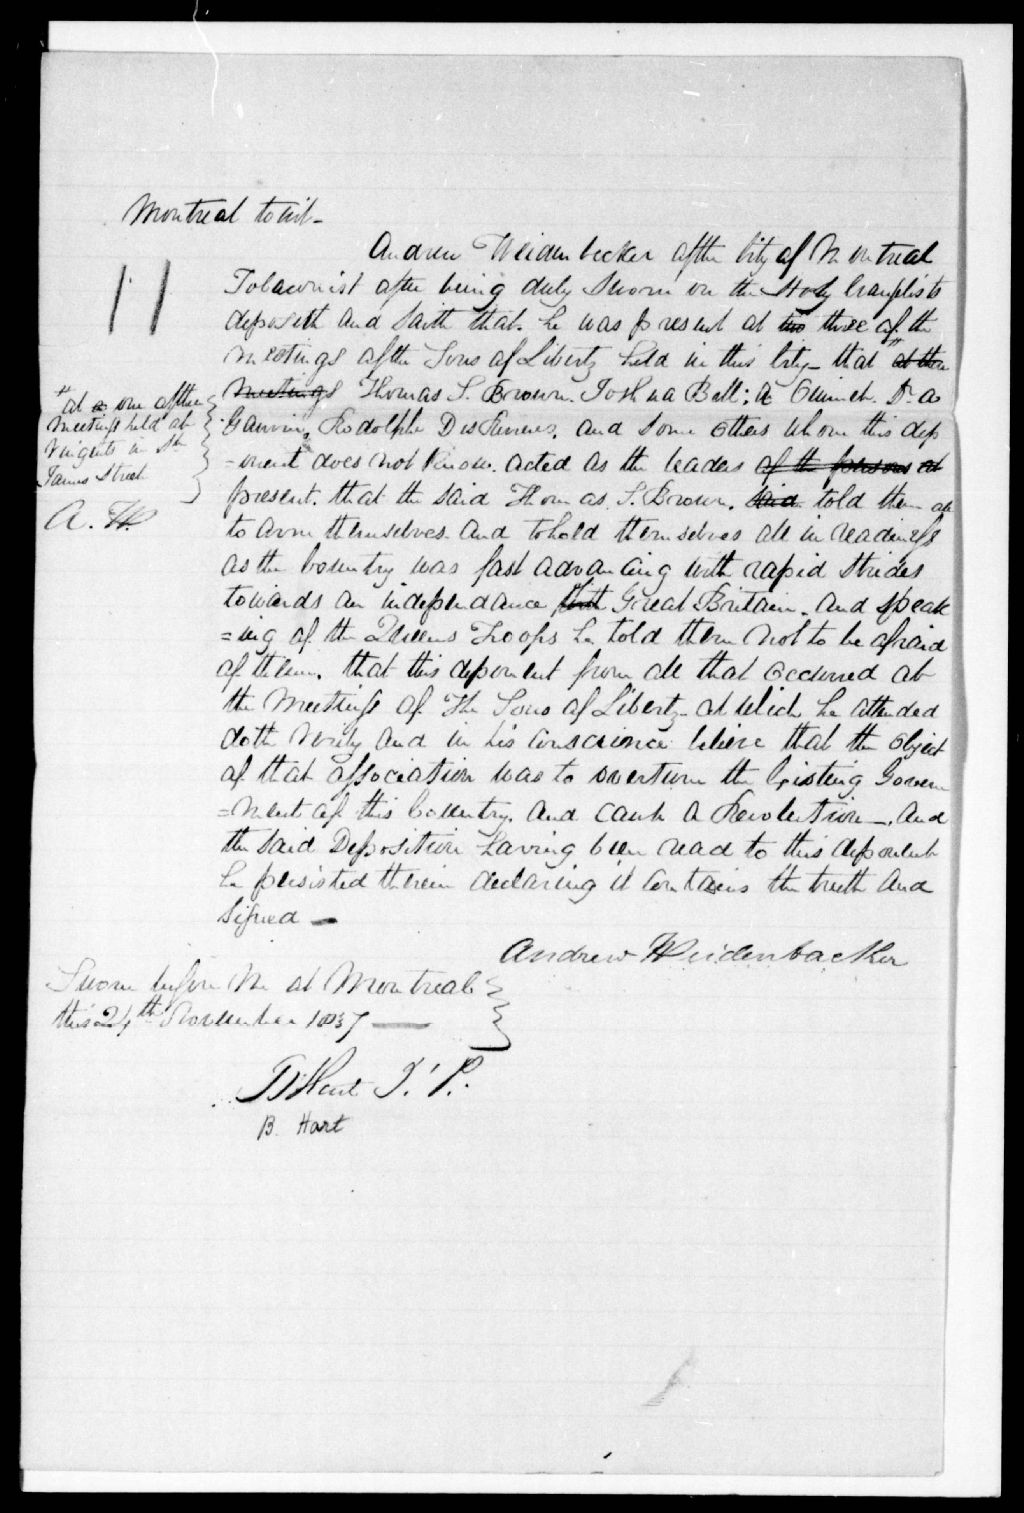 Montreal to wit -
Andrew Weidenbecker of the City of Montreal
11
Tobacconist after being duly Sworn on the Holy Evangelists
deposeth and Saith that he was present at two three of the
meetings of the Sons of Liberty held in this City - that " at these
meetings Thomas S. Brown. Joshua Bell; A Ouimet. Dr. A
"at a one of the
meetings held at
Nugents in St
James Street
A. W.
Gauvin, Rodolphe DesRivieres, and Some Others whom this dep
=onent does not Know. acted as the leaders of the persons at
present. that the said Thomas S. Brown. said told them all
to arm themselves. and to hold themselves all in readiness
as the Country was fast advancing with rapid strides
towards an independance with Great Britain. and speak
=ing of the Queens Troops he told them not to be afraid
of them. that this deponent from all that occurred at
the Meetings of The Sons of Liberty at which he attended
doth verily and in his conscience believe that the object
of that association was to overturn the Existing Govern
=ment of this Country. and cause a Revolution -. And
the said Deposition having been read to this deponent
he persisted therein declaring it contains the truth and
signed -
Andrew Weidenbacker
Sworn before Me at Montreal
this 24th November 1837
B Hart J. P.
B. Hart